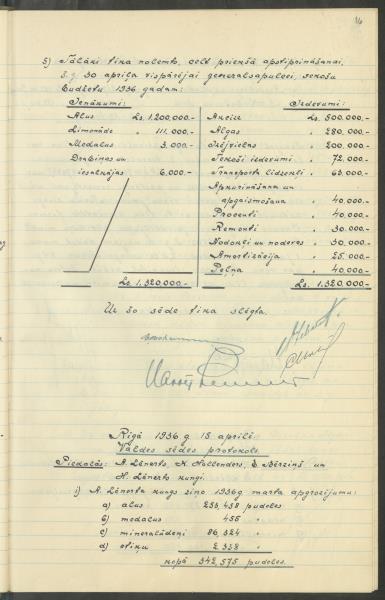 16
5) Tālāki tika nolemts celt priekšā apstiprināšanai
š.g. 30 aprīļa vispārējai generalsapulcei, sekošu
budžetu 1936 gadam:
Ienākumi: Izdevumi:
Alus Ls. 1.200.000.- Akcize Ls. 500.000.-
Limonāde " 111.000.- Algas " 280.000.-
Medalus " 9.000.- Izejvielas " 200.000.-
Drabiņas un Tekoši izdevumi " 72.000.-
iesalnājas " 6.000.- Transporta līdzekļi " 63.000.-
Apkurināšana un
apgaismošana " 40.000.-
Procenti " 40.000.-
Remonti " 30.000.-
Nodokļi un nodevas " 30.000.-
Amortizācija " 25.000.-
Peļņa " 40.000.-
Ls 1.320.000.- Ls. 1.320.000.-
Ar šo sēde tika slēgta.
Rīgā 1936 g 15. aprīlī
Valdes sēdes protokols.
Piedalās: A. Lēnerts, K Hollenders, E Bērziņš un
H. Lēnerts kungi.
1) A. Lēnerts kungs ziņo 1936g marta apgrozījumu:
a) alus 253,458 pudeles
b) medalus 455 "
c) mineralūdeņi 86,324 "
d) etiķu 2338 "
kopā 342,575 pudeles.